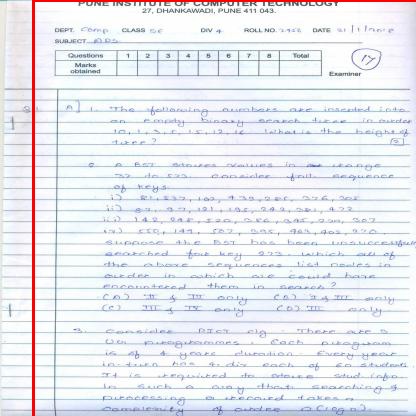 PUNE INSTITUTE OF COMPUTER TECHNOLOGY
27, DHANKAWADI, PUNE 411 043.
DEPT. Comp CLASS SE DIV 4 ROLL NO. DATE
SUBJECT ADS
Questions 1 2 3 4 5 6 7 8 Total
Marks obtained
Examiner
A] 1. The following numbers are inserted into
an empty binary search tree in order
10, 1, 3, 5, 15, 12, 16 What is the height of
tree? [2]
2. A BST stores values in range
37 to 573. Consider foll. sequence
of keys.
i) 81, 537, 102, 439, 285, 376, 305
ii) 52, 97, 121, 195, 242, 381, 472
iii) 142, 248, 520, 386, 345, 270, 307
iv) 550, 149, 507, 395, 463, 402, 270
Suppose the BST has been unsuccessfully
searched for key 273. Which all of
the above sequences list nodes in
order in which we could have
encountered them in search?
(A) II & III only (B) I & III only
(C) III & IV only (D) III only
3. Consider PICT clg. There are 3
UG programmes. Each programm
is of 4 years duration. Every year
in-turn has 4 div each of 60 students.
It is required to store stud info
in such a way that searching &
processing a record takes a
complexity of order O(log n).